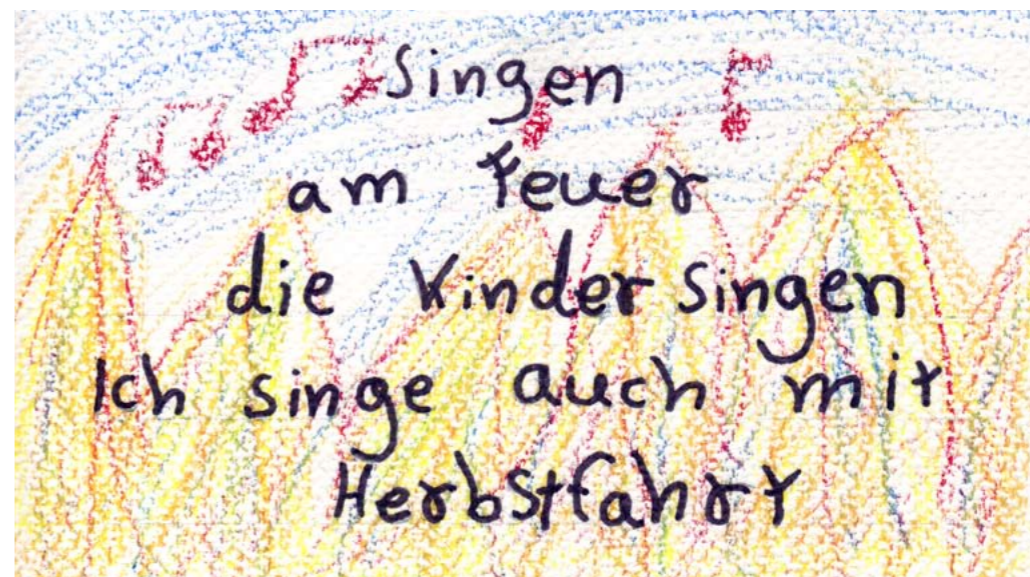 Singen
am Feuer
die Kinder singen
Ich singe auch mit
Herbstfahrt